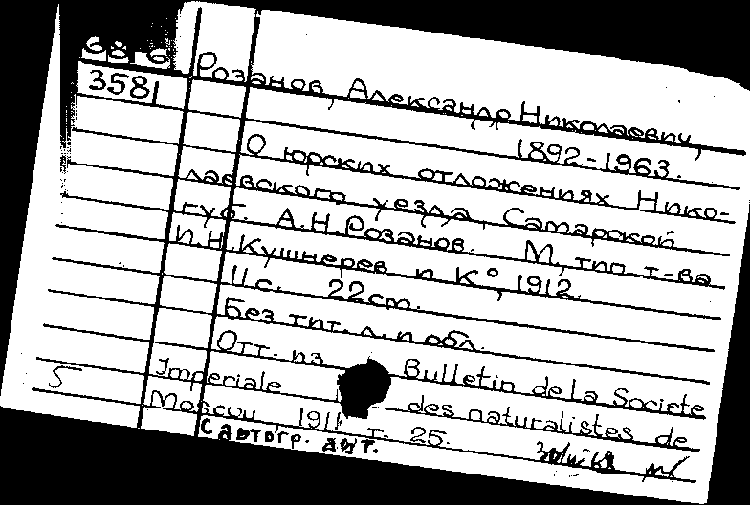 68-6
3581
Розанов, Александр Николаевич,
1892-1963.
О юрских отложениях Нико-
лаевского уезда, Самарской
губ. А.Н.Розанов. М, тип т-ва
И.Н.Кушнерев и К°, 1912.
11с. 22cm.
Без тит. л. и обл.
Отт. из Bulletin de la Societe
Imperiale des naturalistes de
Moscou 1911 т. 25.
С автогр. авт.
5